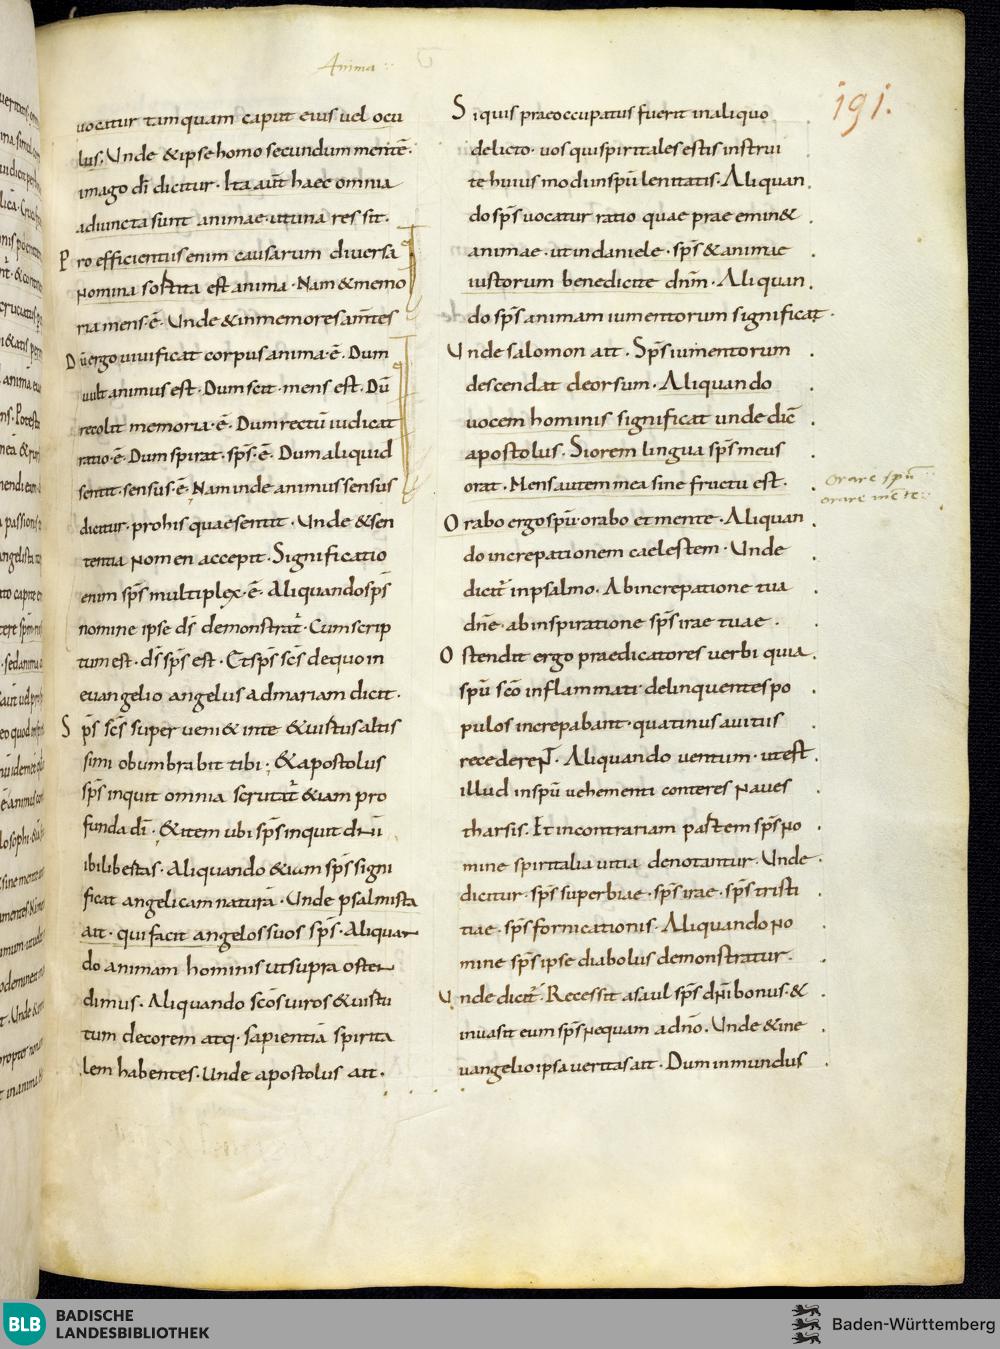 Anima
191.
uocatur tamquam caput eius uel ocu
lus. Unde &ipse homo secundum mentē.
imago dī dicitur. Ita aūt haec omnia
adiuncta sunt animae. ut una res sit.
Pro efficientiis enim causarum diuersa
nomina sortita est anima. Nam & memo
ria mens.ē. Unde & inmemores amētes
Dū ergo uiuificat corpus anima.ē. Dum
uult animus est. Dum scit. mens est. Dū
recolit memoria.ē. Dum rectū iudicat
ratio.ē. Dum spirat. sp̄s.ē. Dum aliquid
sentit. sensus.ē. Nam inde animus sensus
dicitur. pro his quae sentit. Unde & sen
tentia nomen accepit. Significatio
enim sp̄s multiplex.ē. Aliquando sp̄s
nomine ipse d̄s demonstrat̄. Cum scrip
tum est. d̄s sp̄s est. Et sp̄s sc̄s de quo in
euangelio angelus ad mariam dicit.
Sp̄s sc̄s superueni& inte &uirtus altis
simi obumbrabit tibi. &apostolus
sp̄s inquit omnia scrutat̄ &iam pro
funda dī. &item ubi sp̄s inquit dnī
ibi libertas. Aliquando &iam sp̄s signi
ficat angelicam naturā. Unde psalmista
ait. qui facit angelos suos sp̄s. Aliquan
do animam hominis ut supra osten
dimus. Aliquando sc̄os uiros & uirtu
tum decorem atq. sapientiā spirita
lem habentes. Unde apostolus ait.
Siquis praeoccupatus fuerit in aliquo
delicto. uos qui spiritales estis instrui
te huius modi inspū lenitatis. Aliquan
do sp̄s uocatur ratio quae praeemin&
animae. ut in daniele. sp̄s & animae
iustorum benedicite dn̄m. Aliquan
do sp̄s animam iumentorum significat.
Unde salomon ait. Sp̄s iumentorum
descendat deorsum. Aliquando
uocem hominis significat unde dic̄
apostolus. Si orem lingua sp̄s meus
orat. Mens autem mea sine fructu est.
Orabo ergo spū. orabo et mente. Aliquan
do increpationem caelestem. Unde
dicit̄ in psalmo. Ab increpatione tua
dn̄e. ab inspiratione sp̄s irae tuae.
Ostendit ergo praedicatores uerbi quia
spū sc̄o inflammati delinquentes po
pulos increpabant. quatinus a uitiis
recederent. Aliquando uentum. ut est
illud inspū uehementi conteres naues
tharsis. Et in contrariam partem sp̄s no
mine spiritalia uitia denotantur. Unde
dicitur. sp̄s superbiae. sp̄s irae. sp̄s tristi
tiae. sp̄s fornicationis. Aliquando no
mine sp̄s ipse diabolus demonstratur.
Unde dicit̄. Recessit a saul sp̄s dn̄i bonus. &
inuasit eum sp̄s nequam a dn̄o. Unde & in e
uangelio ipsa ueritas ait. Dum inmundus
orare spū
orare mēte
BLB BADISCHE
LANDESBIBLIOTHEK
Baden-Württemberg